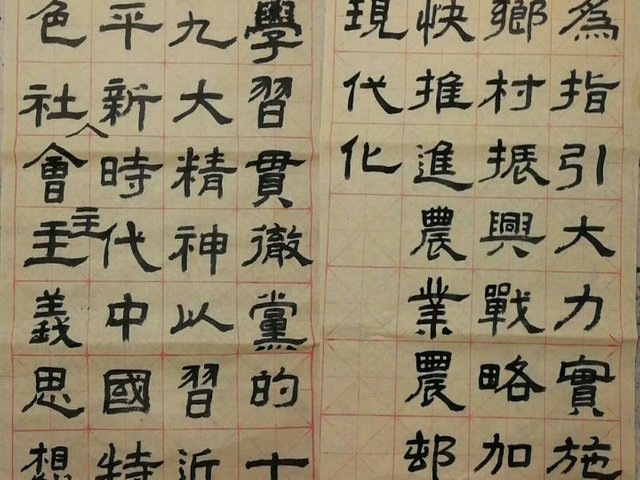 學習貫徹黨的十
九大精神以習近
平新時代中國特
主
色社會主義思想
為指引大力實施
鄉村振興戰略加
快推進農業農邨
現代化